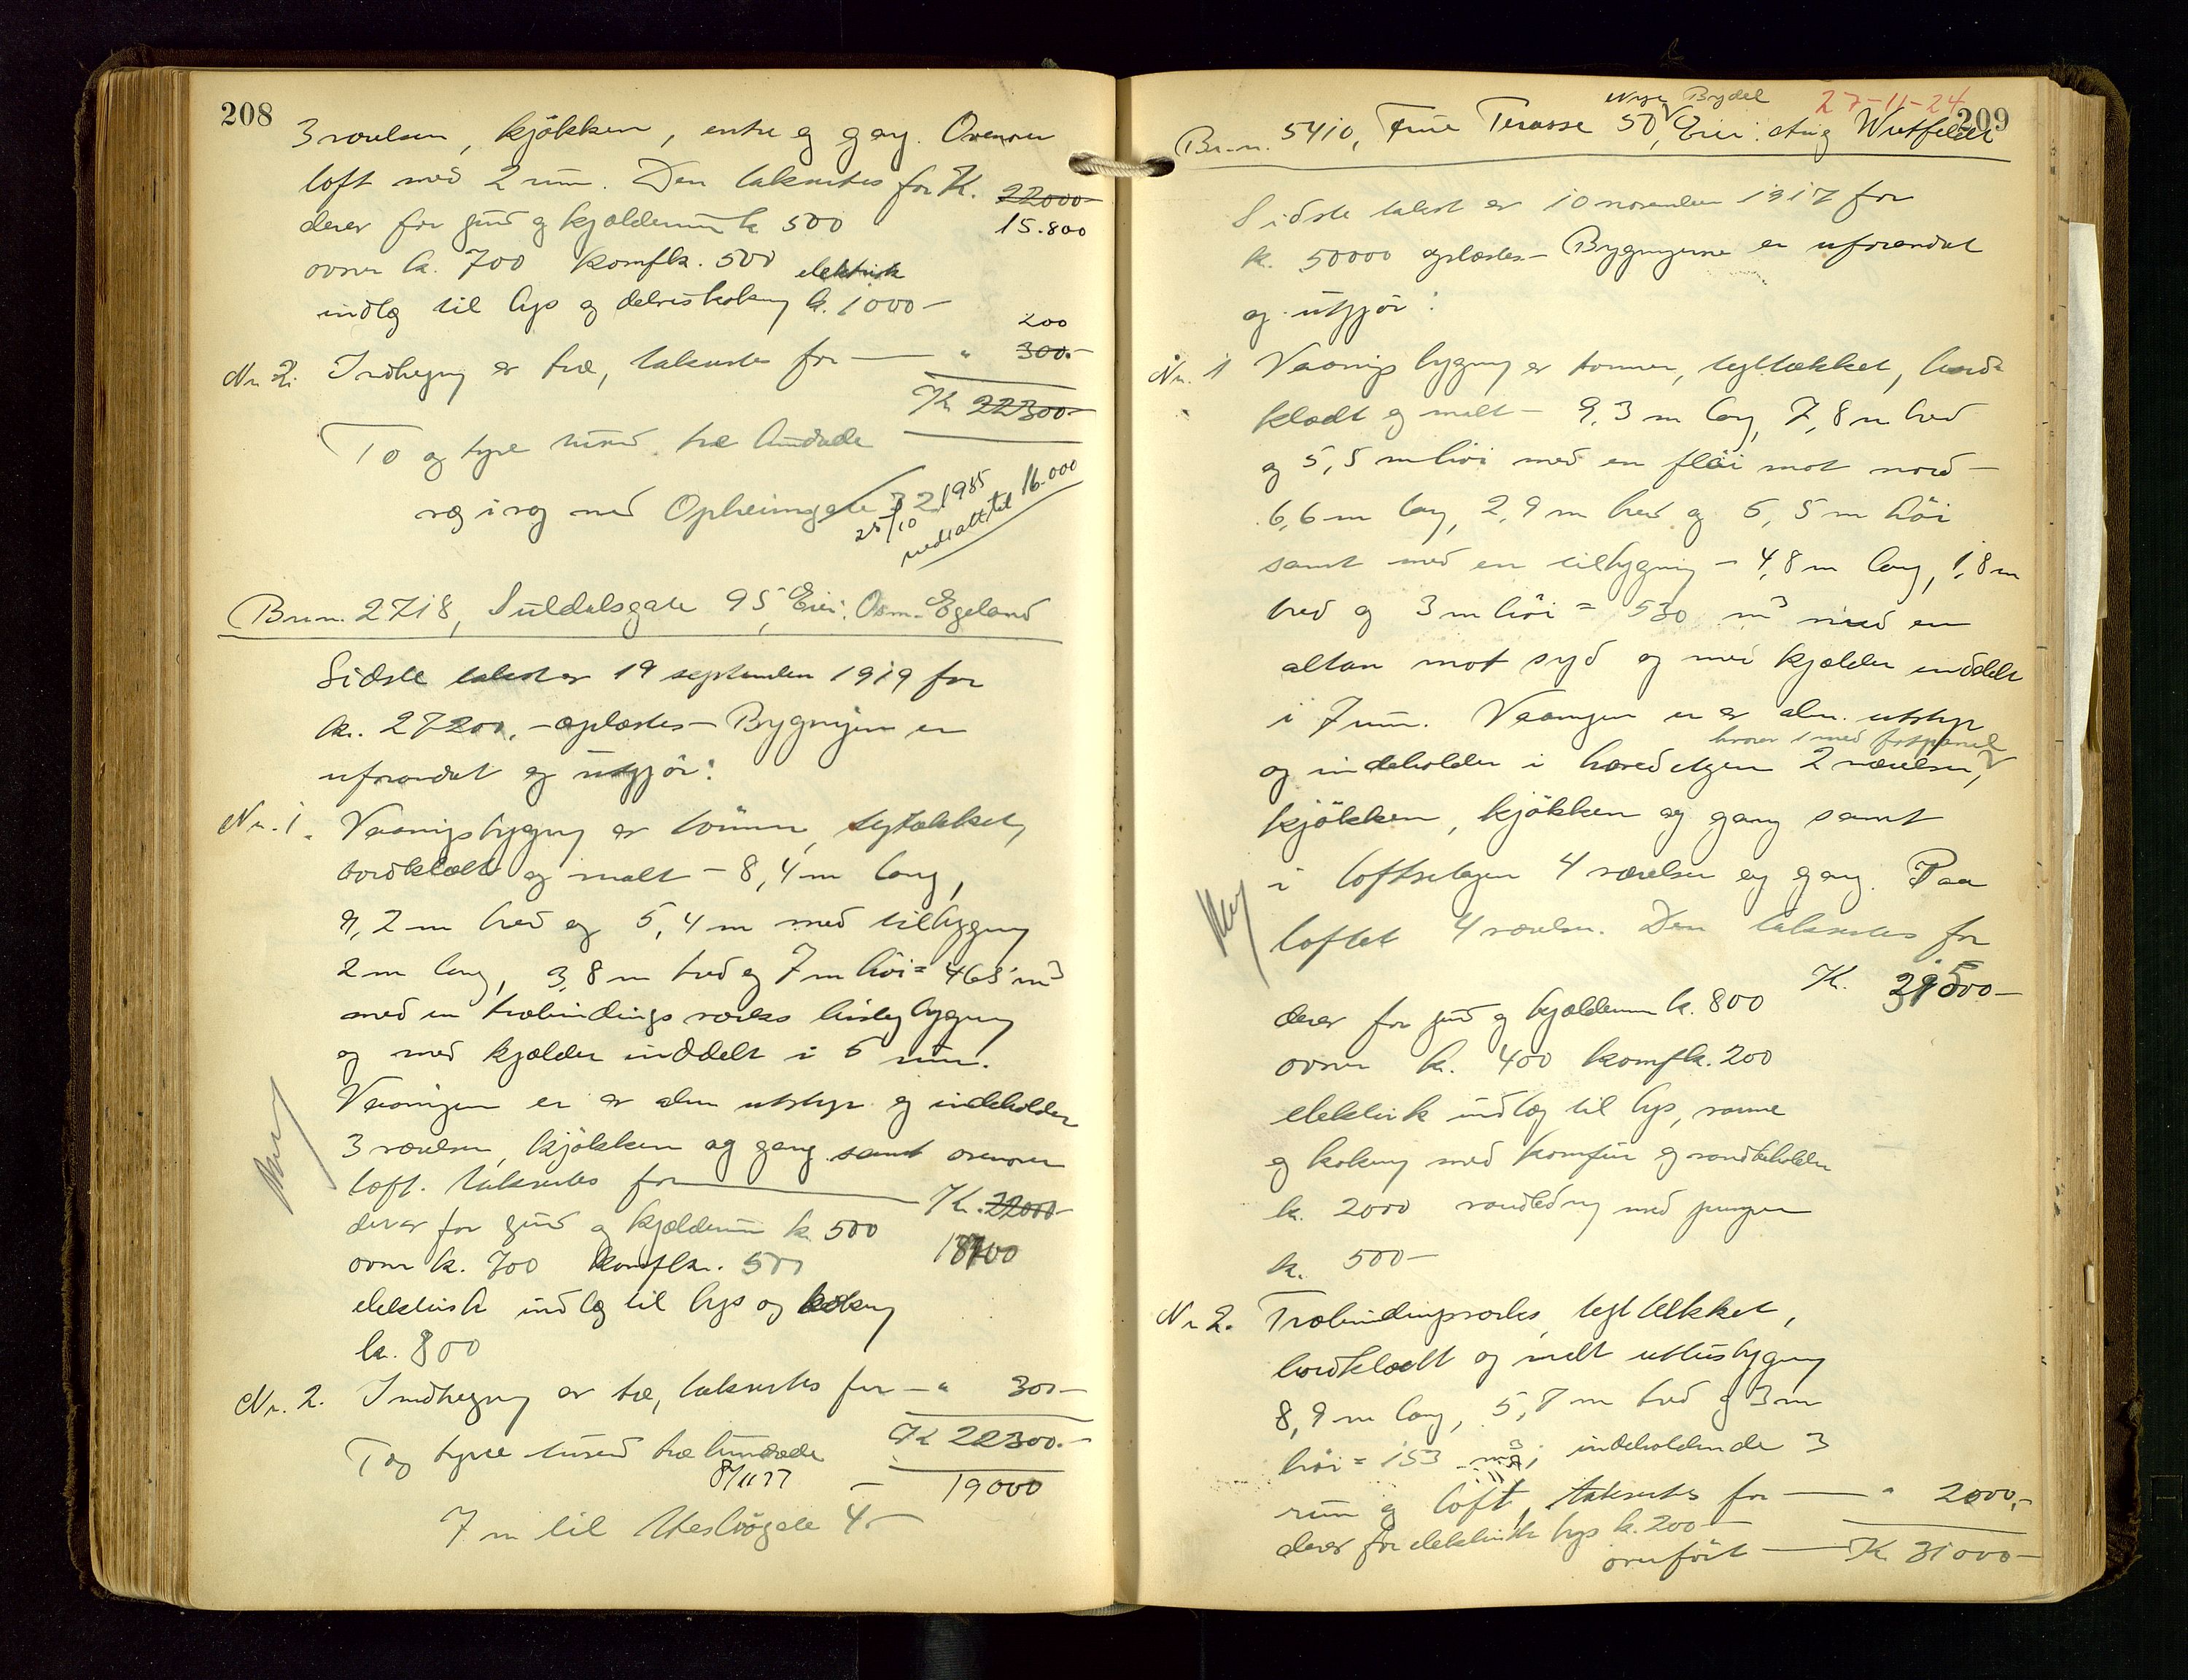 208
3 værelser, kjökken, entre og gang. Ovenover
loft med 2 rum. Den takseres for K. 22000-
derav for grund og kjælderrum k. 500 15.800
ovner k. 700 komf k. 500 elektrisk
indlæg til lys og delvis kokning k. 1000-
200
Nr. 2. Indhegning av træ, takseres for — " 300.-
K 22300.-
To og tyve tusind tre hundrede
væg i væg med Opheimgate 32
25/10 1935
nedsatt til 16.000
Br.nr. 2718, Suldalsgate 95, Eier: Osm. Egeland
Sidste takst av 19 september 1919 for
kr. 27200,- oplæstes - Bygningen er
uforandret og utgjör:
Nr. 1. Vaaningsbygning av tömmer, tegltækket,
bordklædt og malt - 8,4 m lang,
9,2 m bred og 5,4 m med tilbygning
2 m lang, 3,8 m bred og 7 m höi = 468 m³
med en træbindingsverks bislagbygning
og med kjælder inddelt i 5 rum.
Vaaningen er av alm utstyr og indeholder
3 værelser, kjökken og gang samt ovenover
loft. takseres for — K. 22000-
derav for grund og kjælderrum k. 500
ovner k. 700 komf kr. 500 18700
elektrisk indlæg til lys og kokning
k. 800
Nr. 2. Indhegning av træ, takseres for - " 300-
K 22300.-
To og tyve tusind tre hundrede
8/11 37 - 19000
7 m til Vesbögate 4.-
27-11-24
209
Nye Bydel
Br.nr. 5410, Terasse 50, Eier:
Sidste takst av 10 november 1917 for
k. 50000 oplæstes - Bygningerne er uforandret
og utgjör:
Nr. 1 Vaaningsbygning av tömmer, tegltækket, bord-
klædt og malt - 9,3 m lang, 7,8 m bred
og 5,5 m höi med en flöi mot nord -
6,6 m lang, 2,9 m bred og 5,5 m höi
samt med en tilbygning - 4,8 m lang, 1,8 m
bred og 3 m höi = 530 m³ med en
altan mot syd og med kjælder inddelt
i 7 rum. Vaaningen er av alm. utstyr
hvorav 1 med brstpanel
og indeholder i hovedetagen 2 værelser,
kjökken, kjökken og gang samt
i loftsetagen 4 værelser og gang. Paa
loftet 4 værelser. Den takseres for
K. 29500-
derav for grund og kjælderrum k. 800
ovner k. 400 komf k. 200
elektrisk indlæg til lys, varme
og kokning med komfur og vandbeholder
k. 2000 vandledning med pumpe
k. 500-
Nr. 2. Træbindingsverks, tegltækket,
bordklædt og malt uthusbygning
8,9 m lang, 5,7 m bred og 3 m
höi = 153 m³; indeholdende 3
rum og loft, takseres for — " 2000,-
derav for elektrisk lys k. 200 -
overfört — K. 31000-